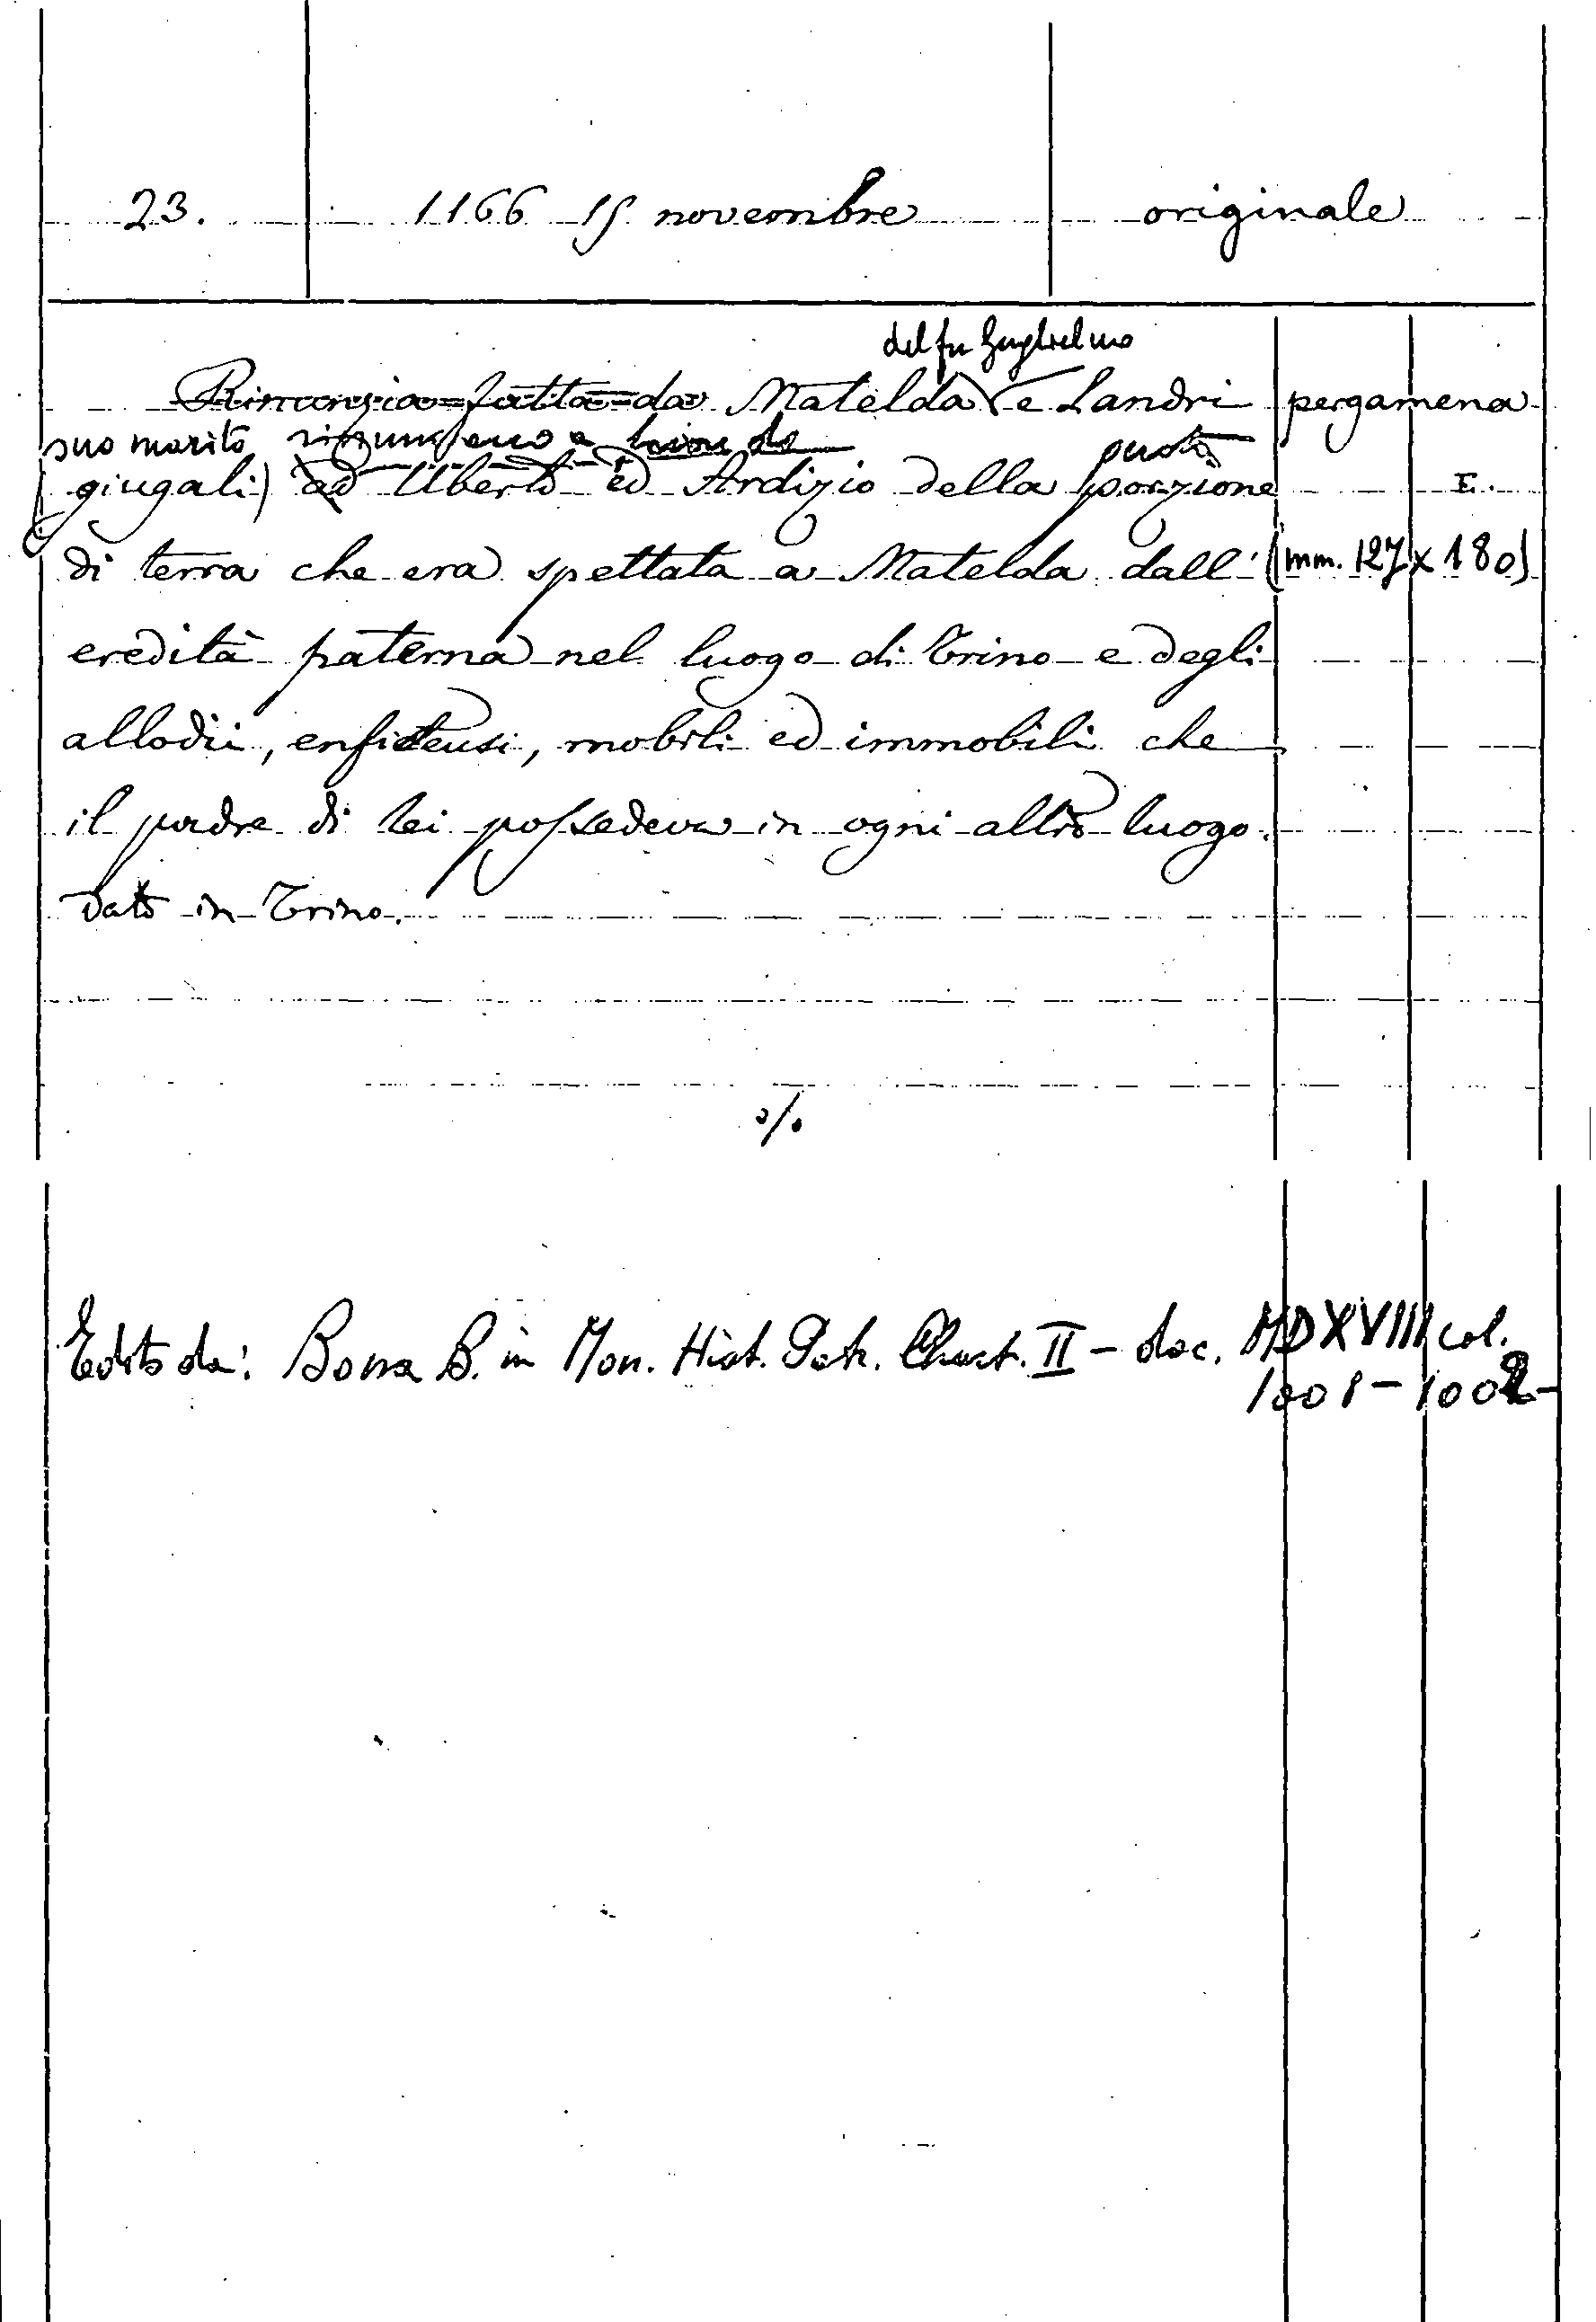 23. 1166 15 novembre originale
del fu Guglielmo
Rinunzia fatta da Matelda e Landri pergamena
suo marito rinunziano a
(giugali) ad Uberto ed Ardizio della porzione I.
di terra che era spettata a Matelda dall' (mm. 127 x 180)
eredità paterna nel luogo di Trino e degli
allodii, enfiteusi, mobili ed immobili che
il padre di lei possedeva in ogni altro luogo.
Dato in Trino.
./.
Edito da: Bona B. in Mon. Hist. Patr. Chart. II - doc. MDXVIII col.
1001 - 1002